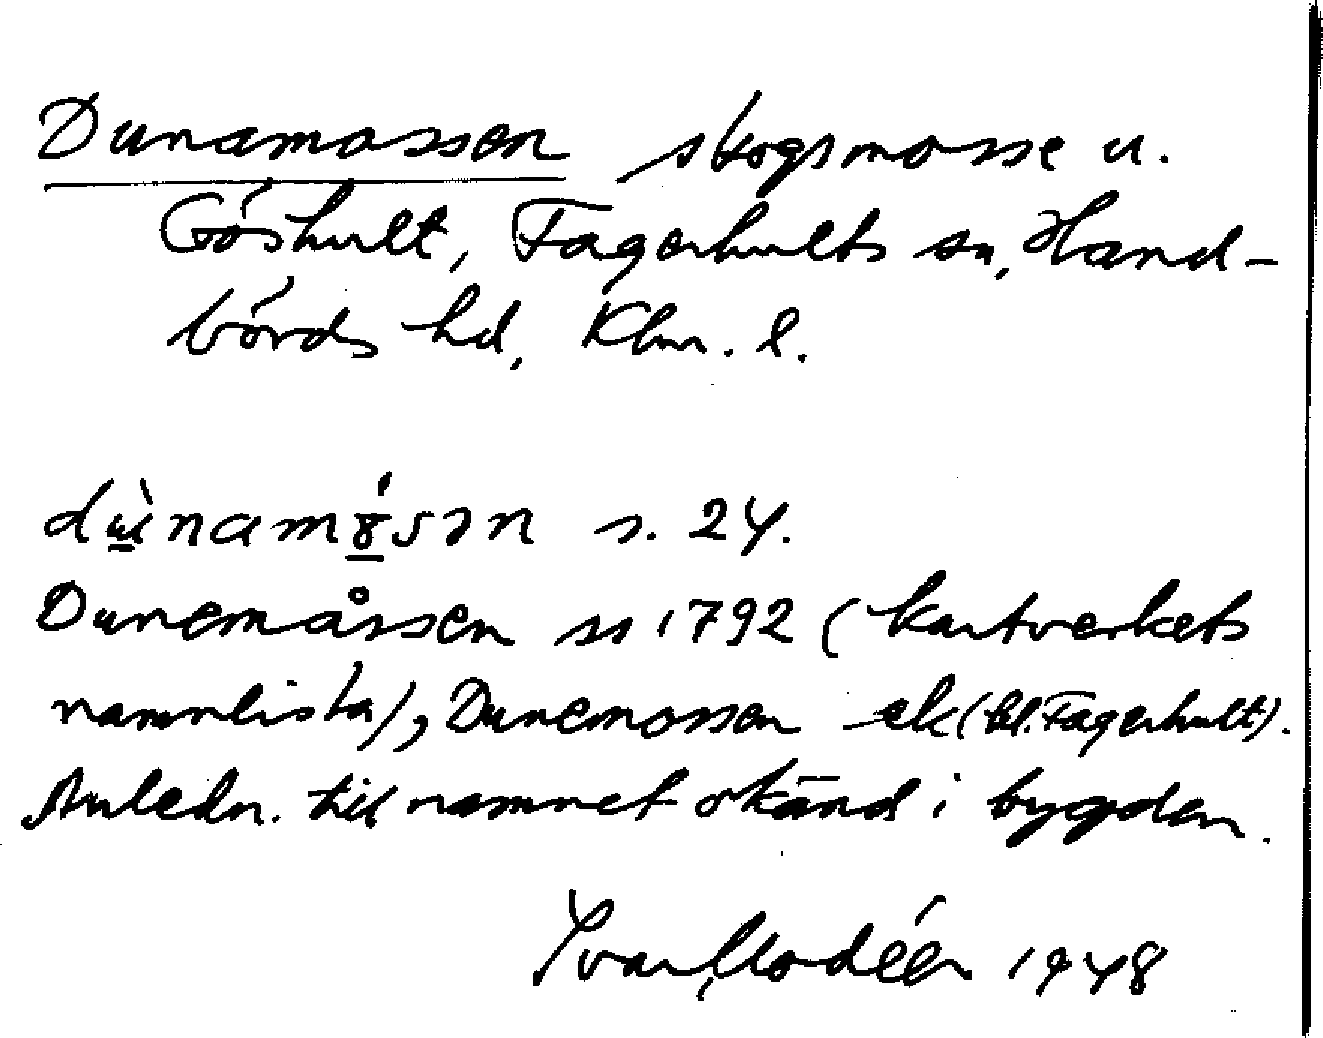 Dunamossen skogsmosse u.
Göshult, Fagerhults sn, Hand-
börds hd, Klm. l.
dùnamósən s. 24.
Dunemåssen ss 1792 (kartverkets
namnlista), Dunemossen ek (bl. Fagerhult).
Anledn. till namnet okänd i bygden.
Ivar Modéer 1948